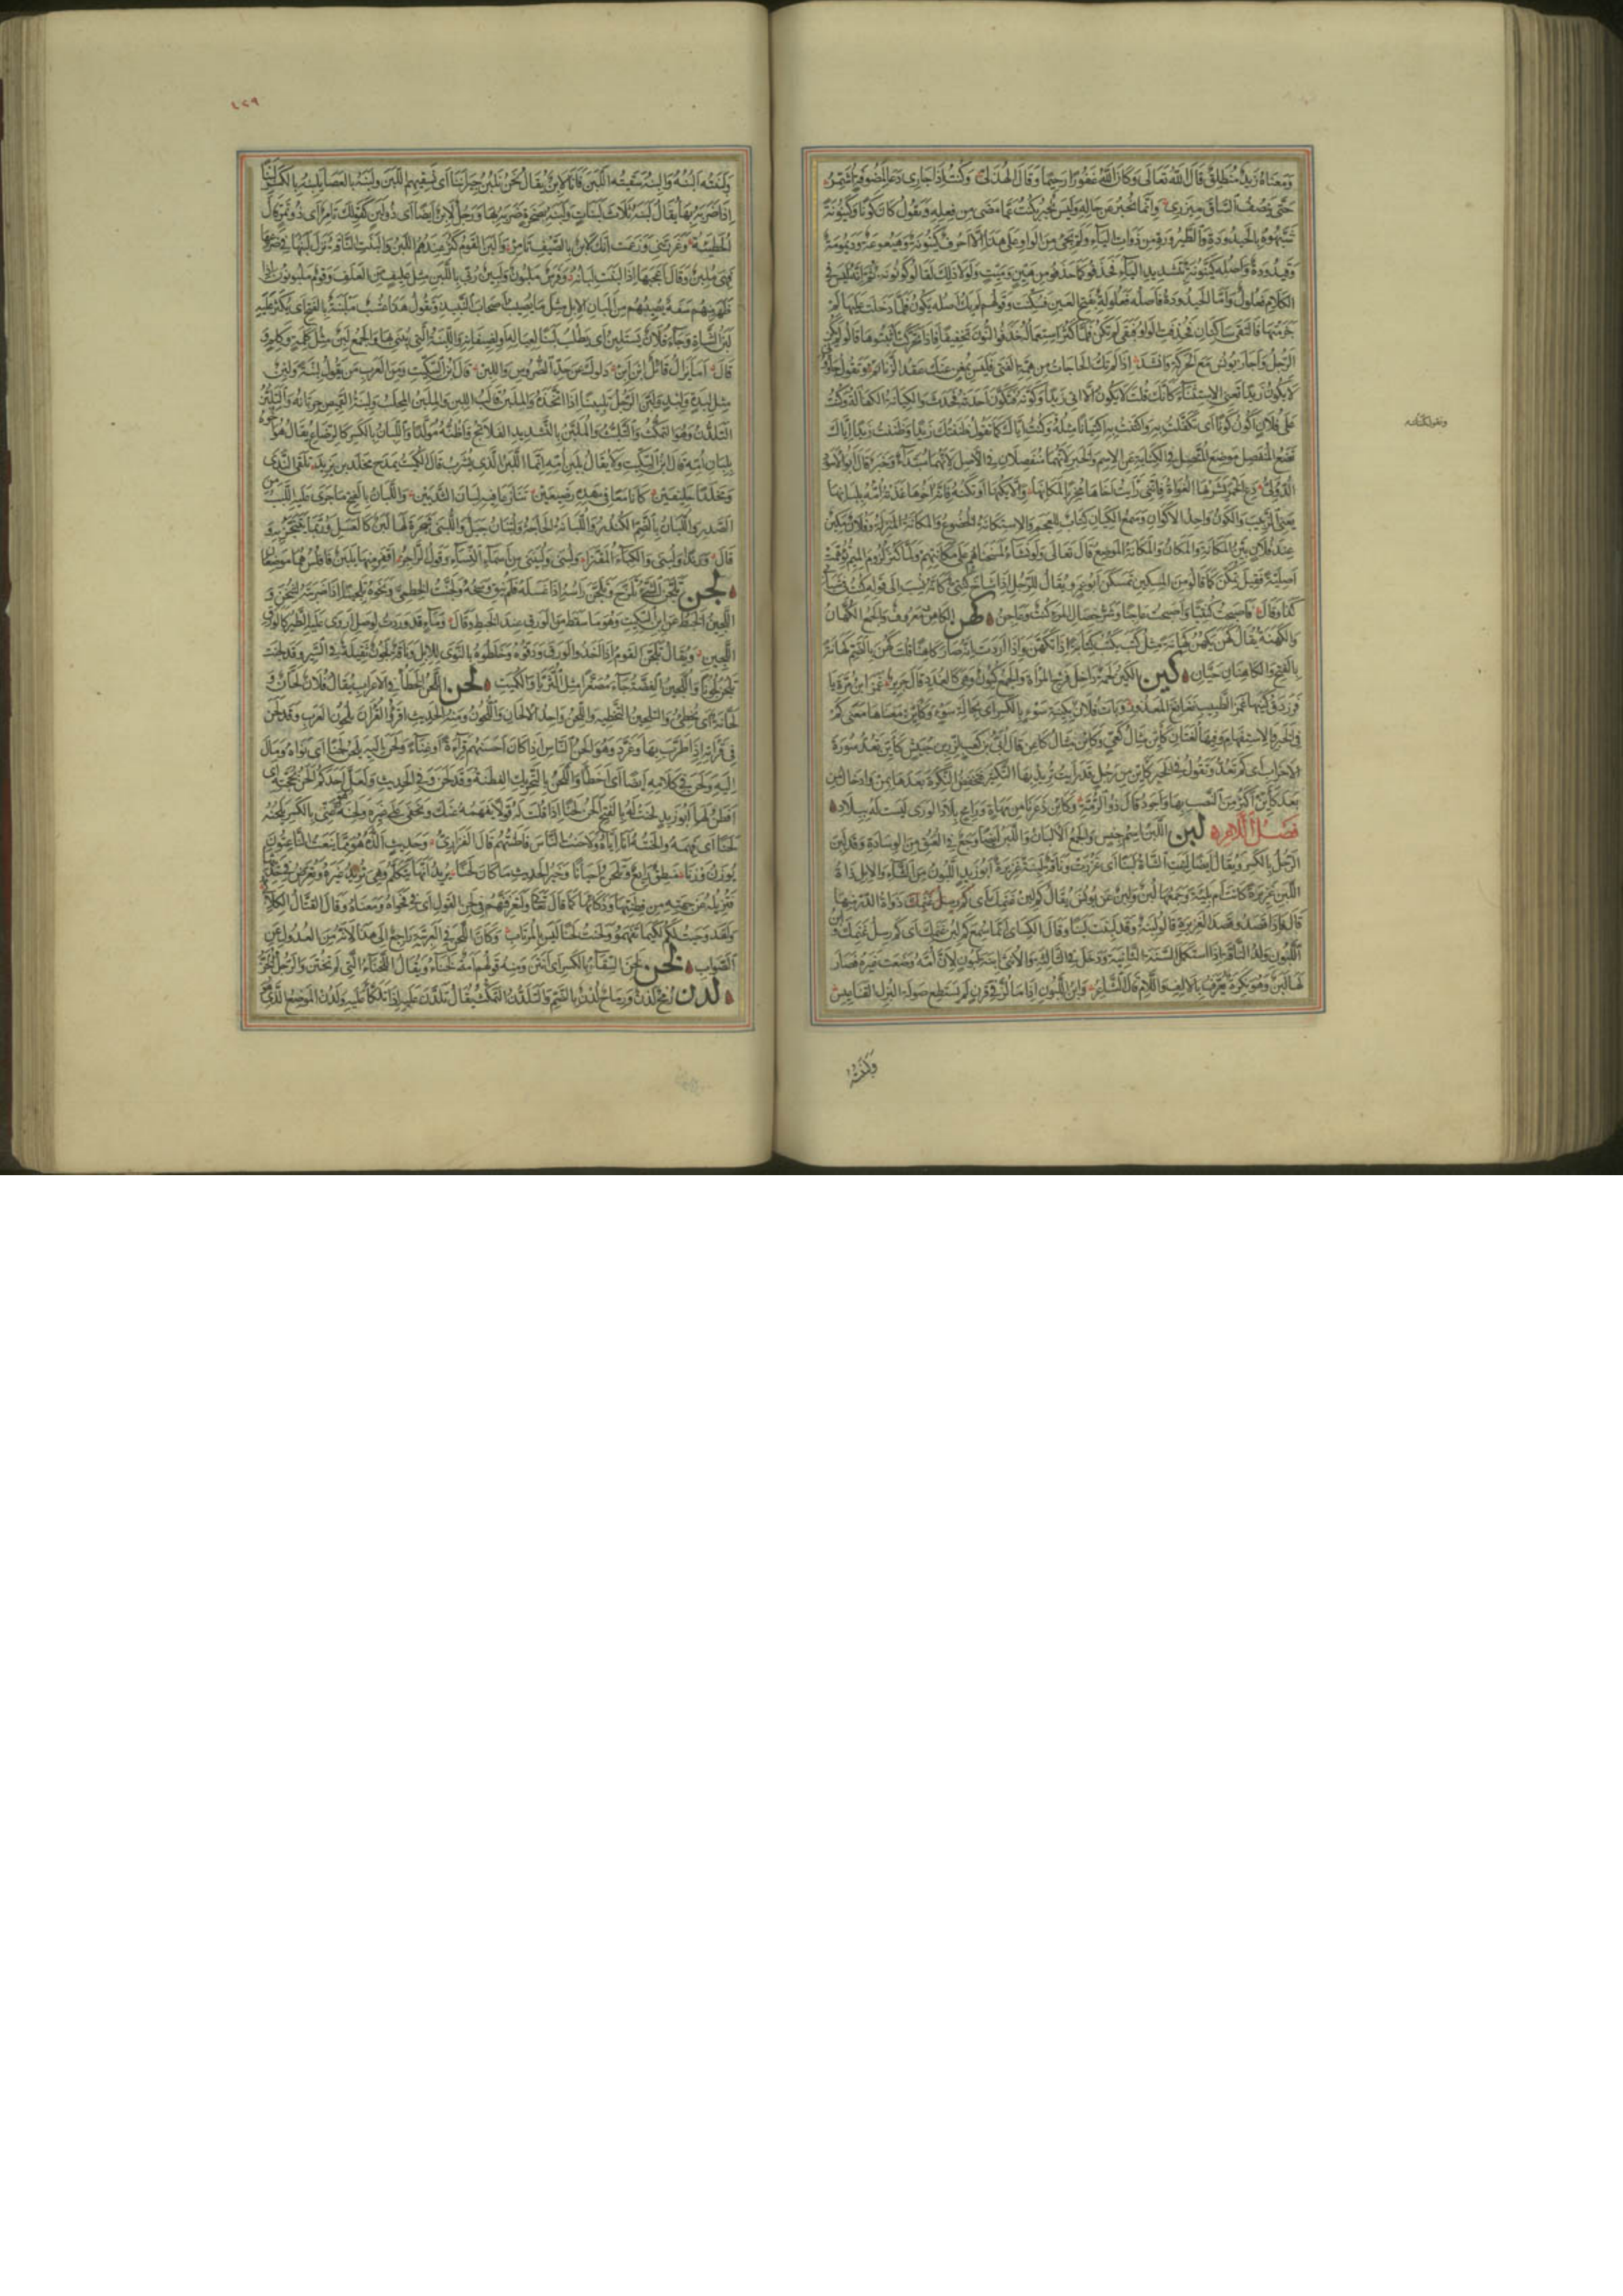 ومعناه زيد منطلق قال الله تعالى وكان الله غفورا رحيما وقال الهذلى وكنت إذا جارى دعا لمضوفة اشمر
حتى ينصف الساق ميزرى وانما تخبر عن حاله وليس تخبر بكنت عما مضى من فعله وتقول كان كونا وكينونة
شبهوه بالحيدودة والطيرورة من ذوات الياء ولم يجئ من الواو على هذا الا احرف كينونة وهيعوعة وديمومة
وقيدودة واصله كينونة بتشديد الياء فحذفوا كما حذفوا من هين وميت ولولا ذلك لقالوا كونونة ثم انه ليس فى
الكلام فعلول واما الحيدودة فاصله فعلولة بفتح العين فسكنت وقولهم لم يك اصله يكون فلما دخلت عليها لم
جزمتها فالتقى ساكنان فحذفت الواو فبقى لم يكن فلما كثر استعماله حذفوا النون تخفيفا فاذا تحركت اثبتوها قالوا لم يكن
الرجل واجاز يونس مع الحركة وانشد اذا لم تك الحاجات من همة الفتى فليس بمغن عنك عقد الرتائم وتقول جاؤنى
لا يكون زيدا تعنى الاستثناء كانك قلت لا يكون الاتى زيدا وكونه فتكون احدثه فحدث والكيانة الكفالة وكنت
على فلان اكون كونا اى تكفلت به واكتنت به اكتيانا مثله وكنت اياك كما تقول ظننتك زيدا وظننت زيدا اياك
تضع المنفصل موضع المتصل فى الكناية عن الاسم والخبر لانهما منفصلان فى الاصل لانهما مبتدأ وخبر قال ابو الاسود
الدؤلى دع الخمر يشربها الغواة فاننى رأيت اخاها مجزيا لمكانها والا يكنها او تكنه فانه اخوها غذته امه بلبانها
يعنى الزبيب والكون واحد الاكوان وسمع الكيان كتاب للعجم والاستكانة الخضوع والمكانة المنزلة وفلان مكين
عند فلان بين المكانة والمكان والمكانة الموضع قال تعالى ولو نشاء لمسخناهم على مكانتهم ولما كثر لزوم الميم توهمت
اصلية فقيل تمكن كما قالوا من المسكين تمسكن ابو عمرو يقال للرجل اذا شاخ كنتى كانه نسب الى قوله كنت فى شبابى
كذا وقال فاصبحت كنتيا واصبحت عاجنا وشر خصال المرء كنت وعاجن كهن الكاهن معروف والجمع الكهان
والكهنة يقال كهن يكهن كهانة مثل كتب يكتب كتابة اذا تكهن واذا اردت انه صار كاهنا قلت كهن بالضم كهانة
بالفتح والكاهنان حيان كين الكين لحمة داخل فرج المرأة والجمع كيون وهى كالغدد قال جرير غمز ابن مرة يا
فرزدق كينها غمز الطبيب نغانغ المعذور وبات فلان بكينة سوء بالكسر اى بحالة سوء وكاين معناها معنى كم
فى الخبر والاستفهام وفيها لغتان كأين مثال كعين وكائن مثال كاعن قال ابى بن كعب لزر بن حبيش كأين تعد سورة
الاحزاب اى كم تعد وتقول فى الخبر كأين من رجل قد رأيت تريد بها التكثير فتخفض النكرة بعدها بمن وادخال من
بعد كأين اكثر من النصب بها واجود قال ذو الرمة وكائن ذعرنا من مهاة ورامح بلاد الورى ليست له ببلاد
فصل اللام لبن اللبن اسم جنس والجمع الالبان واللبن ايضا وجع فى العنق من الوسادة وقد لبن
الرجل بالكسر ويقال ايضا لبنت الشاة لبنا اى غزرت وناقة لبنة غزيرة ابو زيد اللبون من الشاء والابل ذات
اللبن غزيرة كانت ام بكيئة وجمعها لبن ولبن عن يونس يقال كم لبن غنمك اى كم رسل غنمك ذوات الدر منها
قال فاذا قصدوا قصد الغزيرة قالوا لبنة وقد لبنت لبنا وقال الكسائى انما سمع كم لبن غنمك اى كم رسل غنمك وابن
اللبون ولد الناقة اذا استكمل السنة الثانية ودخل فى الثالثة والانثى ابنة لبون لان امه وضعت غيره فصار
لها لبن وهو نكرة يعرف بالالف واللام قال الشاعر وابن اللبون اذا ما لز فى قرن لم يستطع صولة البزل القناعيس
ولبنته
٤٢٩
ولبنته البنه والبنه سقيته اللبن فانا لابن يقال نحن نلبن جيراننا اى نسقيهم اللبن ولبنه بالعصا يلبنه بالكسر لبنا
اذا ضربه بها يقال لبنه ثلاث لبنات ولبنه بصخرة ضربه بها ورجل لابن ايضا اى ذو لبن كقولك تامر اى ذو تمر قال
الحطيئة وغررتنى وزعمت انك لابن بالصيف تامر والبن القوم كثر عندهم اللبن والبنت الناقة نزل لبنها فى ضرعها
فهى ملبن وقال اعجبها اذا البنت لبانه وفرس ملبون ولبين ربى باللبن مثل عليف من العلف وقوم ملبونون اذا
ظهر منهم سفه يصيبهم من البان الابل مثل ما يصيب اصحاب النبيذ وتقول هذا عشب ملبنة بالفتح اى يكثر عليه
لبن الشاة وجاء فلان يستلبن اى يطلب لبنا لعياله او لضيفانه واللبنة التى يبنى بها والجمع لبن مثل كلمة وكلم
قال اما يزال قائل ابن ابن دلوك عن حد الضروس واللبن قال ابن السكيت ومن العرب من يقول لبنة ولبن
مثل لبدة ولبد ولبن الرجل تلبينا اذا اتخذه والملبن قالب اللبن والملبن المحلب ولبنة القميص جربانه والتلبن
التلدن وهو التمكث والتلبث والملبن بالتشديد الفلاتج واظنه مولدا واللبان بالكسر كالرضاع يقال هو اخوه
بلبان امه قال ابن السكيت ولا يقال بلبن امه انما اللبن الذى يشرب قال الكميت يمدح مخلد بن يزيد تلقى الندى
ومخلدا حليفين كانا معا فى مهده رضيعين تنازعا فيه لبان الثديين واللبان بالفتح ما جرى عليه اللبب من
الصدر واللبان بالضم الكندر واللبانة الحاجة ولبنان جبل واللبنى شجرة لها لبن كالعسل وربما يتبخر به
قال ورندا ولبنى والكباء المقترا ولبنى ولبينى من اسماء النساء وقول الراجز اقفر منها يلبن فافلس هما موضعان
لجن تلجن الشئ تلزج وتلجن راسه اذا غسله فلم ينق وسخه ولجنت الخطمى ونحوه تلجينا اذا ضربته ليثخن و
اللجين الخبط عن ابن السكيت وهو ما سقط من الورق عند الخبط وقال وماء قد وردت لوصل اروى عليه الطير كالورق
اللجين ويقال تلجن القوم اذا اخذوا الورق ودقوه وخلطوه بالنوى للابل وناقة لجون ثقيلة فى السير وقد لجنت
تلجن لجونا واللجين الفضة جاء مصغرا مثل الثريا والكميت لحن اللحن الخطأ فى الاعراب يقال فلان لحان و
لحانة اى يخطئ والتلحين التخطئة واللحن واحد الالحان واللحون ومنه الحديث اقرؤا القرآن بلحون العرب وقد لحن
فى قراءته اذا طرب بها وغرد وهو الحن الناس اذا كان احسنهم قراءة او غناء ولحن اليه يلحن لحنا اى نواه ومال
اليه ولحن فى كلامه ايضا اى اخطأ واللحن بالتحريك الفطنة وقد لحن وفى الحديث ولعل احدكم الحن بحجته اى
افطن لها ابو زيد لحنت له بالفتح الحن لحنا اذا قلت له قولا يفهمه عنك ويخفى على غيره ولحنه هو عنى بالكسر يلحنه
لحنا اى فهمه والحنته انا اياه ولاحنت الناس فاطنتهم قال الفزارى وحديث الذه هو مما ينعت الناعتون
يوزن وزنا منطق رائع وتلحن احيانا وخير الحديث ما كان لحنا يريد انها تتكلم وهى تريد غيره وتعرض فى حديثها
فتزيله عن جهته من فطنتها وذكائها كما قال تعالى ولتعرفنهم فى لحن القول اى فى فحواه ومعناه وقال القتال الكلابى
ولقد وحيت لكم لكيما تفهموا ولحنت لحنا ليس بالمرتاب وكان اللحن فى العربية راجع الى هذا لانه من العدول عن
الصواب لخن لخن السقاء بالكسر اى انتن ومنه قولهم امة لخناء ويقال اللخناء التى لم تختن والرجل الخن
لدن رمح لدن ورماح لدن بالضم والتلدن التمكث يقال تلدن عليه اذا تلكأ عليه ولدن الموضع الذى هو